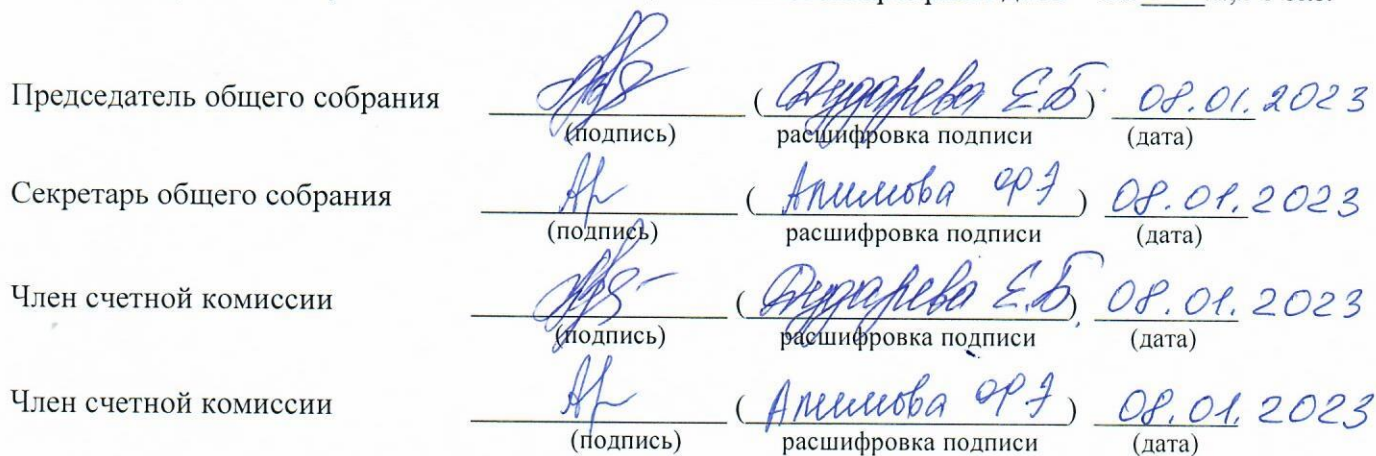 Председатель общего собрания (Дударева Е.Б.) 08.01.2023
(подпись) расшифровка подписи (дата)
Секретарь общего собрания (Апимова Ф.Э) 08.01.2023
(подпись) расшифровка подписи (дата)
Член счетной комиссии (Дударева Е.Б.) 08.01.2023
(подпись) расшифровка подписи (дата)
Член счетной комиссии (Апимова Ф.Э) 08.01.2023
(подпись) расшифровка подписи (дата)